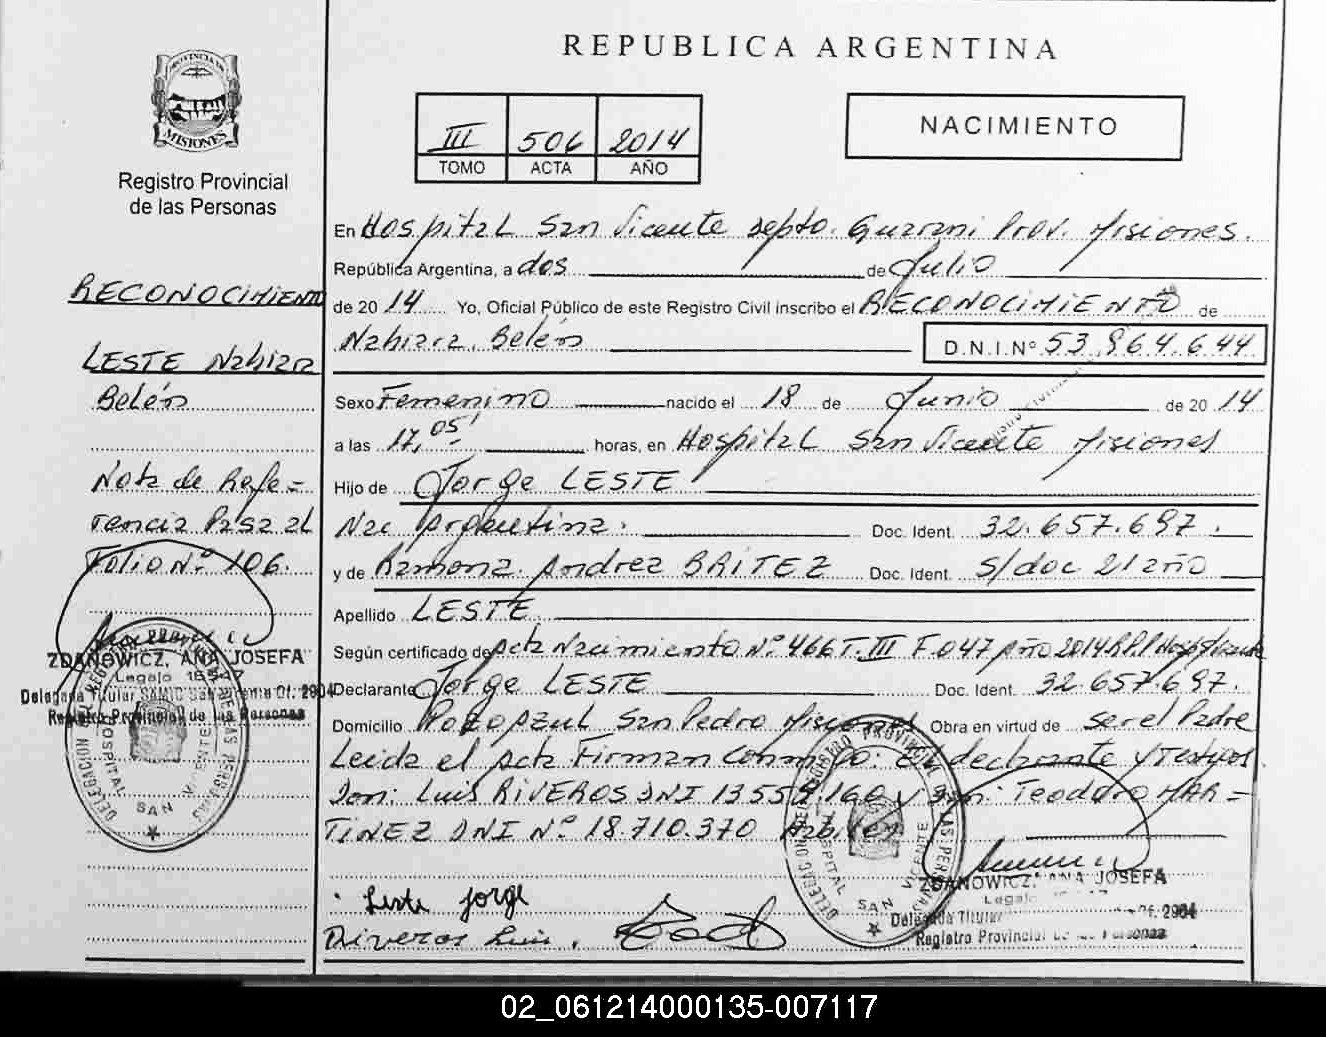 REPUBLICA ARGENTINA
PROVINCIA DE
MISIONES
Registro Provincial
de las Personas
III 506 2014
TOMO ACTA AÑO
NACIMIENTO
RECONOCIMIENTO
LESTE Nahiara
Belén
Nota de Refe=
rencia Pasa al
Folio Nº 106.
ZDANOWICZ, ANA JOSEFA
Delegada Titular SAMIC San Vicente Of. 2904
Registro Provincial de las Personas
HOSPITAL SAN VICENTE
En Hospital San Vicente Depto. Guarani Prov. Misiones.
República Argentina, a dos de Julio
de 20 14 Yo, Oficial Público de este Registro Civil inscribo el RECONOCIMIENTO de
Nahiara Belén D.N.I.Nº 53.964.644
Sexo Femenino nacido el 18 de Junio de 20 14
a las 17,05' horas, en Hospital San Vicente Misiones
Hijo de Jorge LESTE
Nac Argentina. Doc. Ident. 32.657.697.
y de Ramona Andrea BRITEZ Doc. Ident. S/doc 21 año
Apellido LESTE
Según certificado de Acta Nacimiento Nº 466 T. III F. 047 Año 2014 R.P.P
Declarante Jorge LESTE Doc. Ident. 32.657.697.
Domicilio Pozo Azul San Pedro Misiones Obra en virtud de ser el Padre
Leida el Acta Firman conmigo: El declarante y Testigos
Don: Luis RIVEROS DNI 13.558.160 y Don: Teodoro MAR=
TINEZ DNI Nº 18.710.370
Leste Jorge
Riveros Luis.
ZDANOWICZ, ANA JOSEFA
Legajo
Delegada Titular Of. 2904
Registro Provincial de las Personas
HOSPITAL SAN VICENTE
02_061214000135-007117